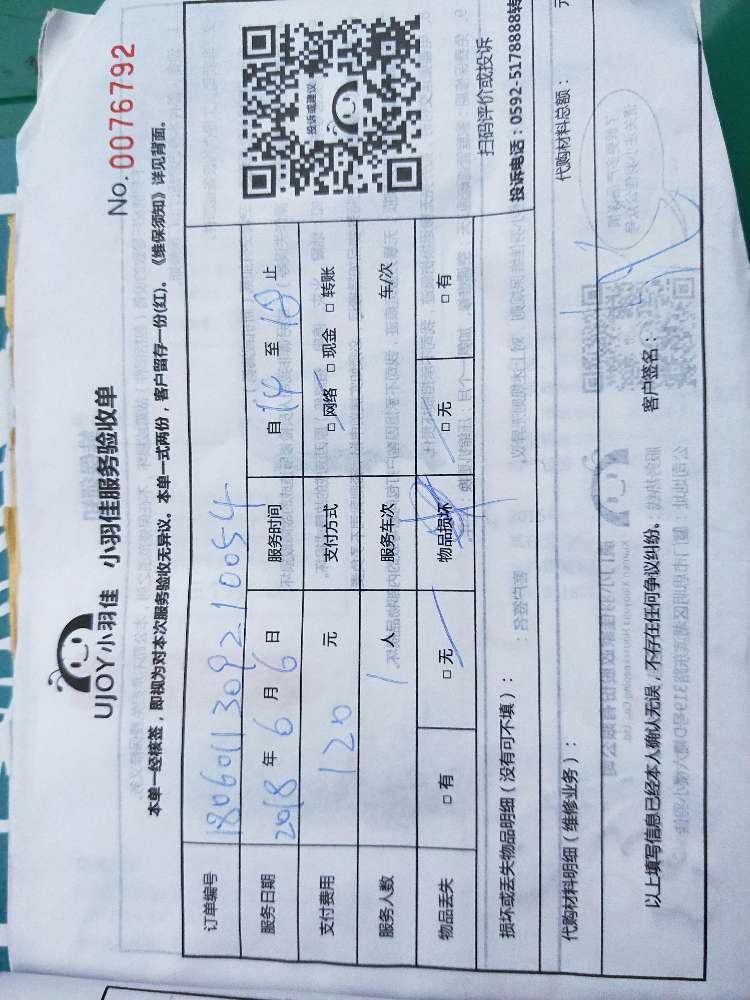 UJOY小羽佳 小羽佳服务验收单
No.0076792
本单一经核签，即视为对本次服务验收无异议。本单一式两份，客户留存一份(红)。《维保须知》详见背面。
订单编号 180601130921 0054
服务日期 2018 年 6 月 6 日 服务时间 自 14 至 18 止
支付费用 120 元 支付方式 □ 网络 □ 现金 □ 转账
服务人数 1 人 服务车次 车/次
物品丢失 □ 有 □ 无 物品损坏 □ 无 □ 有
投诉或建议
扫码评价或投诉
投诉电话：0592-5178888转
损坏或丢失物品明细（没有可不填）：
代购材料明细（维修业务）： 代购材料总额： 元
以上填写信息已经本人确认无误，不存在任何争议纠纷。 客户签名：